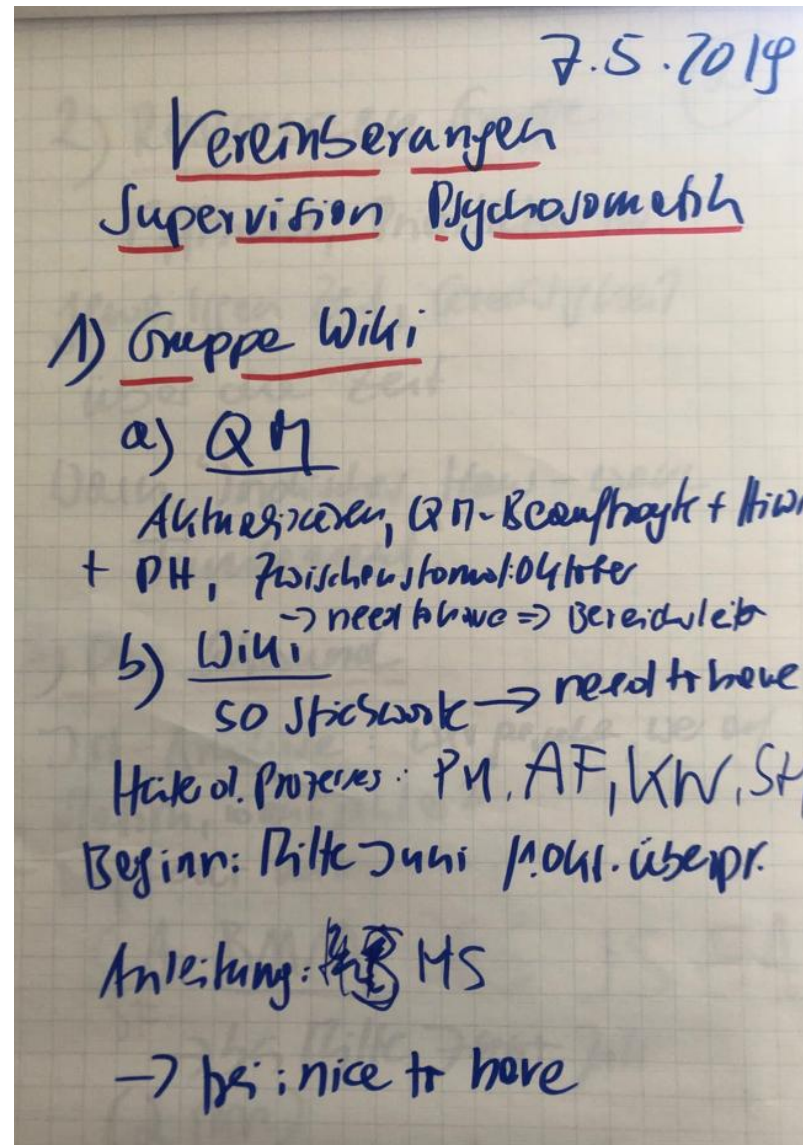 7.5.2019
Vereinbarungen
Supervision Psychosomatik
1) Gruppe Wiki
a) QM
Aktualisieren, QM-Beauftragte + Hiwi
+ PH, Zwischenstand: Oktober
→ need to have ⇒ Bereichsleit
b) Wiki
50 Stichworte → need to have
Hüter d. Prozesses: PM, AF, KW, St
Beginn: Mitte Juni 1. Okt. überpr.
Anleitung: MS
→ bei: nice to have